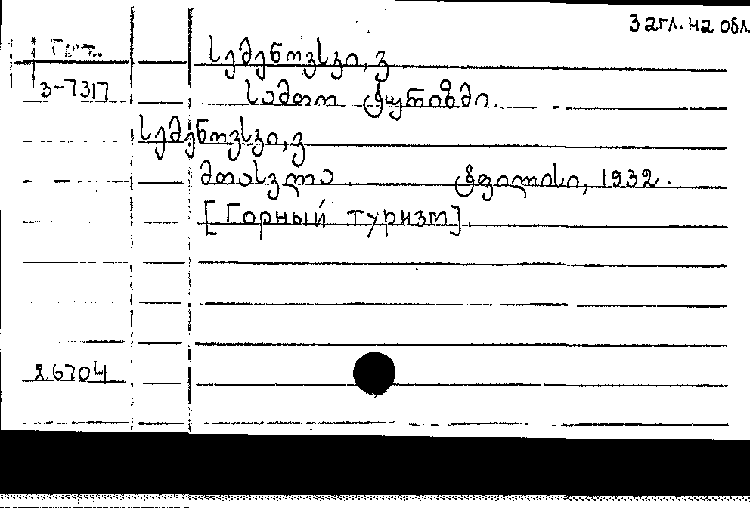 Загл. на обл.
Груз.
3-7317
სემენოვსკი, ვ
სამთო ტურიზმი.
სემენოვსკი, ვ
მთასვლა. ტფილისი, 1932.
[Горный туризм]
26704